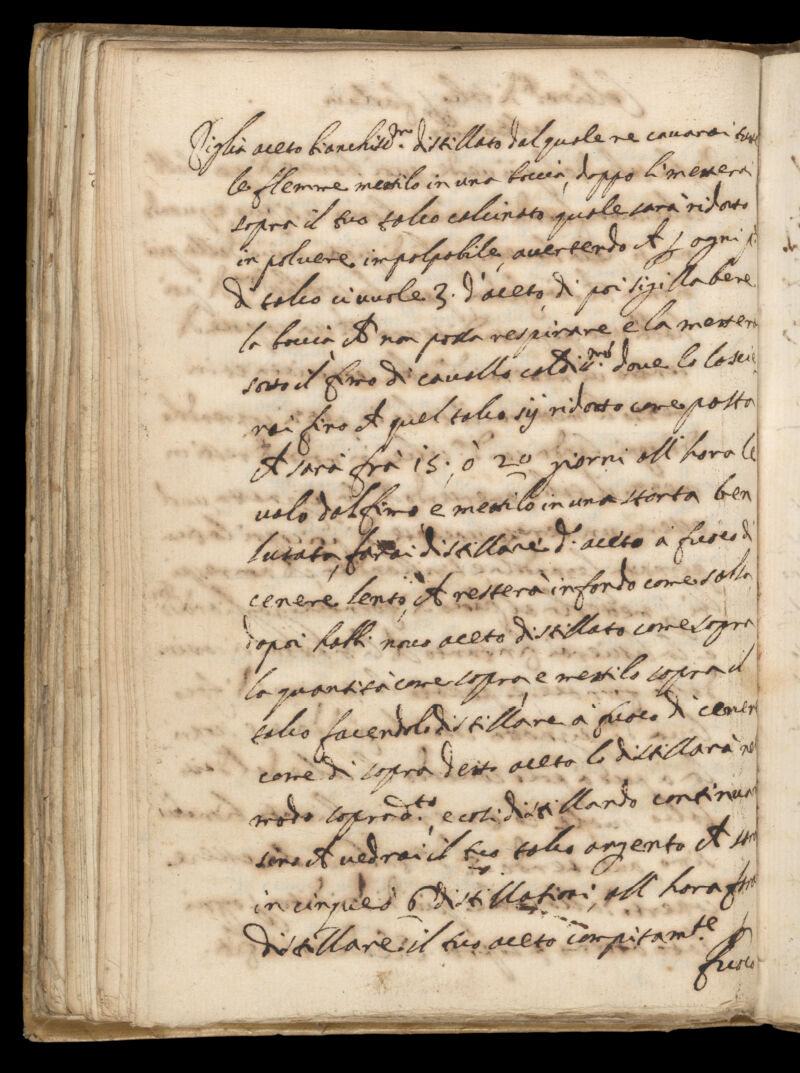 Piglia aceto bianchis.mo distillato dal quale ne cavarai tutte
le flemme mettilo in una boccia, doppo li metterai
sopra il tuo talco calcinato quale sarà ridotto
in polvere impalpabile, avertendo ch p ogni
di talco ci vuole 3. d'aceto, di poi sigilla bene
la boccia ch non possa respirare e la metterai
sotto il fimo di cavallo caldis.mo dove lo lascie
rai fino ch quel talco sij ridotto come pasta
ch sarà frà 15. ò 20 giorni all hora le
valo dal fimo e mettilo in una storta ben
lutata, farai distillare d. aceto à fuoco di
cenere lento, ch resterà in fondo come salla,
dapoi habbi novo aceto distillato come sopra
la quantità come sopra, e mettilo sopra il
talco facendolo distillare à fuoco di cener
come di sopra detto aceto lo distillarà nel
modo sopradto, e così distillando continua
sino ch vedrai il tuo talco argento ch sarà
in cinque ò 6 distillationi, all hora farai
distillare il tuo aceto compitamte p
fuoco